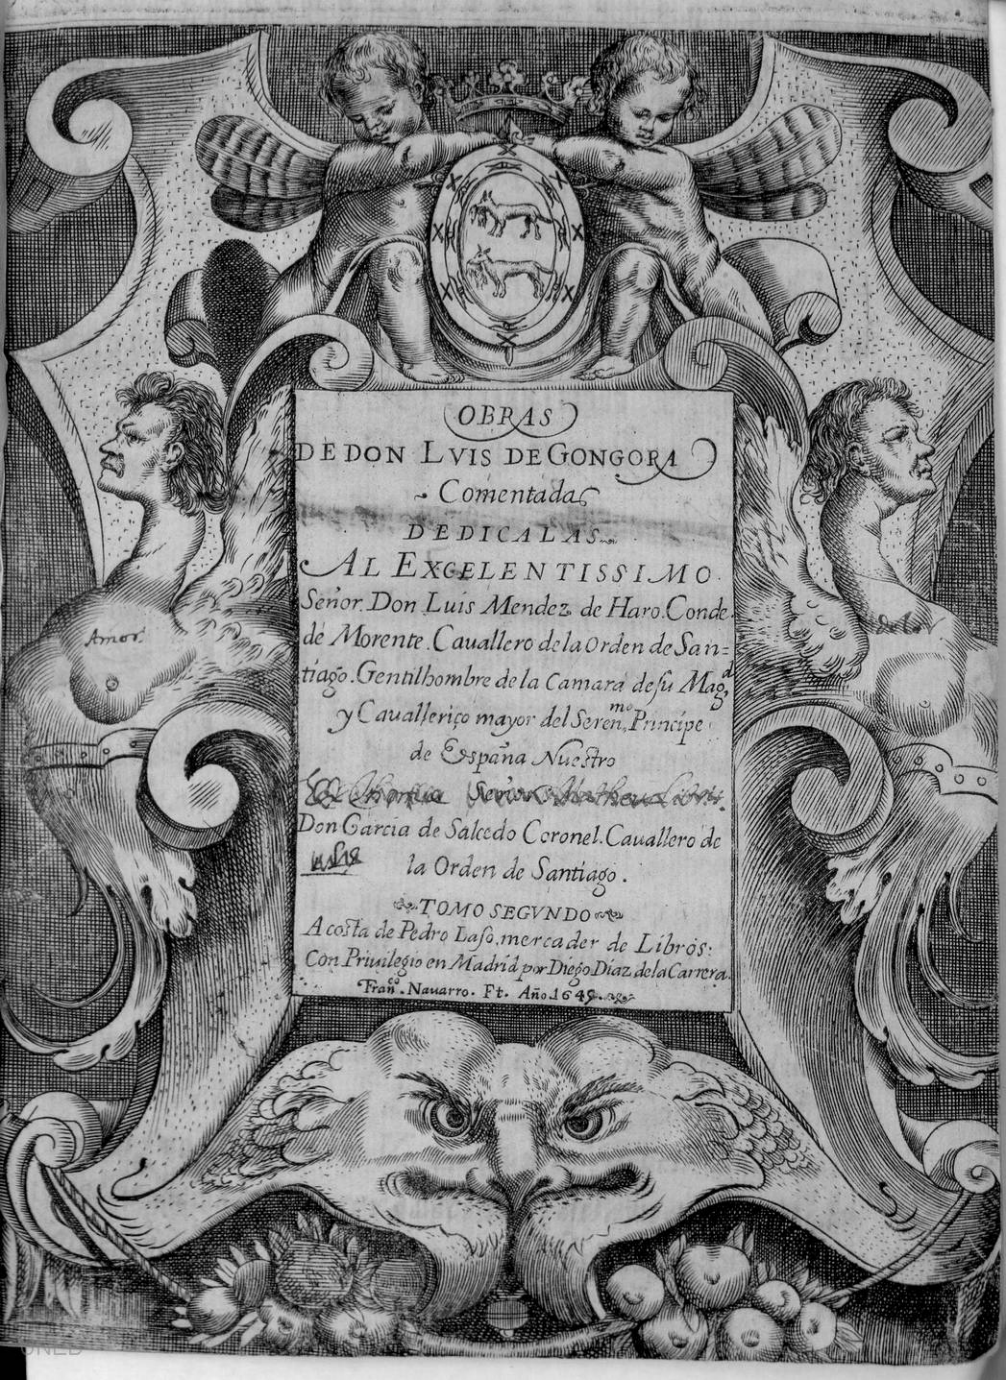 OBRAS
DE DON LVIS DE GONGORA
Comentadas
DEDICALAS
AL EXCELENTISSIMO
Señor. Don Luis Mendez de Haro. Conde
de Morente. Cauallero de la Orden de San=
tiago. Gentilhombre de la Camara de su Mag.d
y Cauallerico mayor del Seren.mo Principe
de España Nuestro
Señor
Don Garcia de Salcedo Coronel. Cauallero de
la Orden de Santiago.
TOMO SEGVNDO
A costa de Pedro Laso, mercader de Libros.
Con Priuilegio en Madrid por Diego Diaz de la Carrera.
Fran.co Nauarro. Ft. Año.
Amor.
UNED